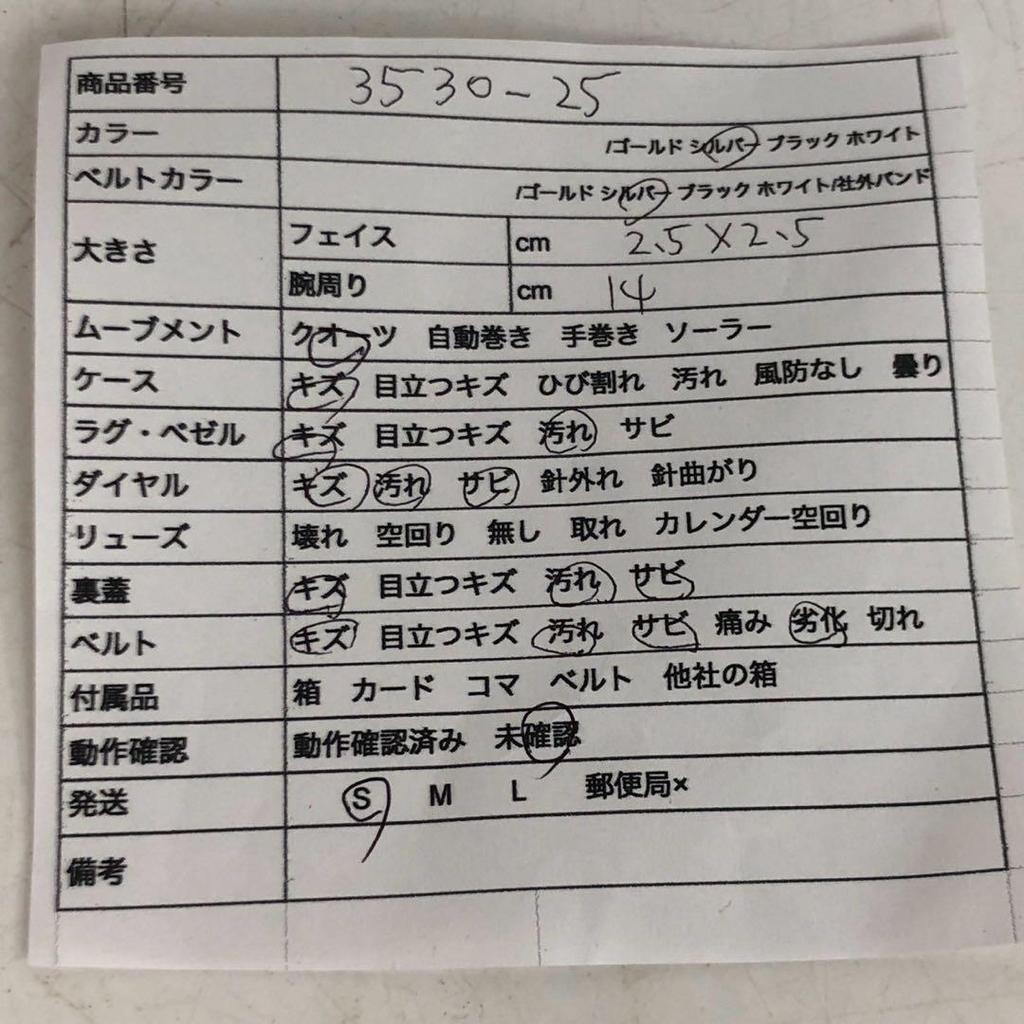 商品番号 3530-25
カラー /ゴールド シルバー ブラック ホワイト
ベルトカラー /ゴールド シルバー ブラック ホワイト/社外バンド
大きさ フェイス cm 2.5×2.5
腕周り cm 14
ムーブメント クオーツ 自動巻き 手巻き ソーラー
ケース キズ 目立つキズ ひび割れ 汚れ 風防なし 曇り
ラグ・ベゼル キズ 目立つキズ 汚れ サビ
ダイヤル キズ 汚れ サビ 針外れ 針曲がり
リューズ 壊れ 空回り 無し 取れ カレンダー空回り
裏蓋 キズ 目立つキズ 汚れ サビ
ベルト キズ 目立つキズ 汚れ サビ 痛み 劣化 切れ
付属品 箱 カード コマ ベルト 他社の箱
動作確認 動作確認済み 未確認
発送 S M L 郵便局×
備考